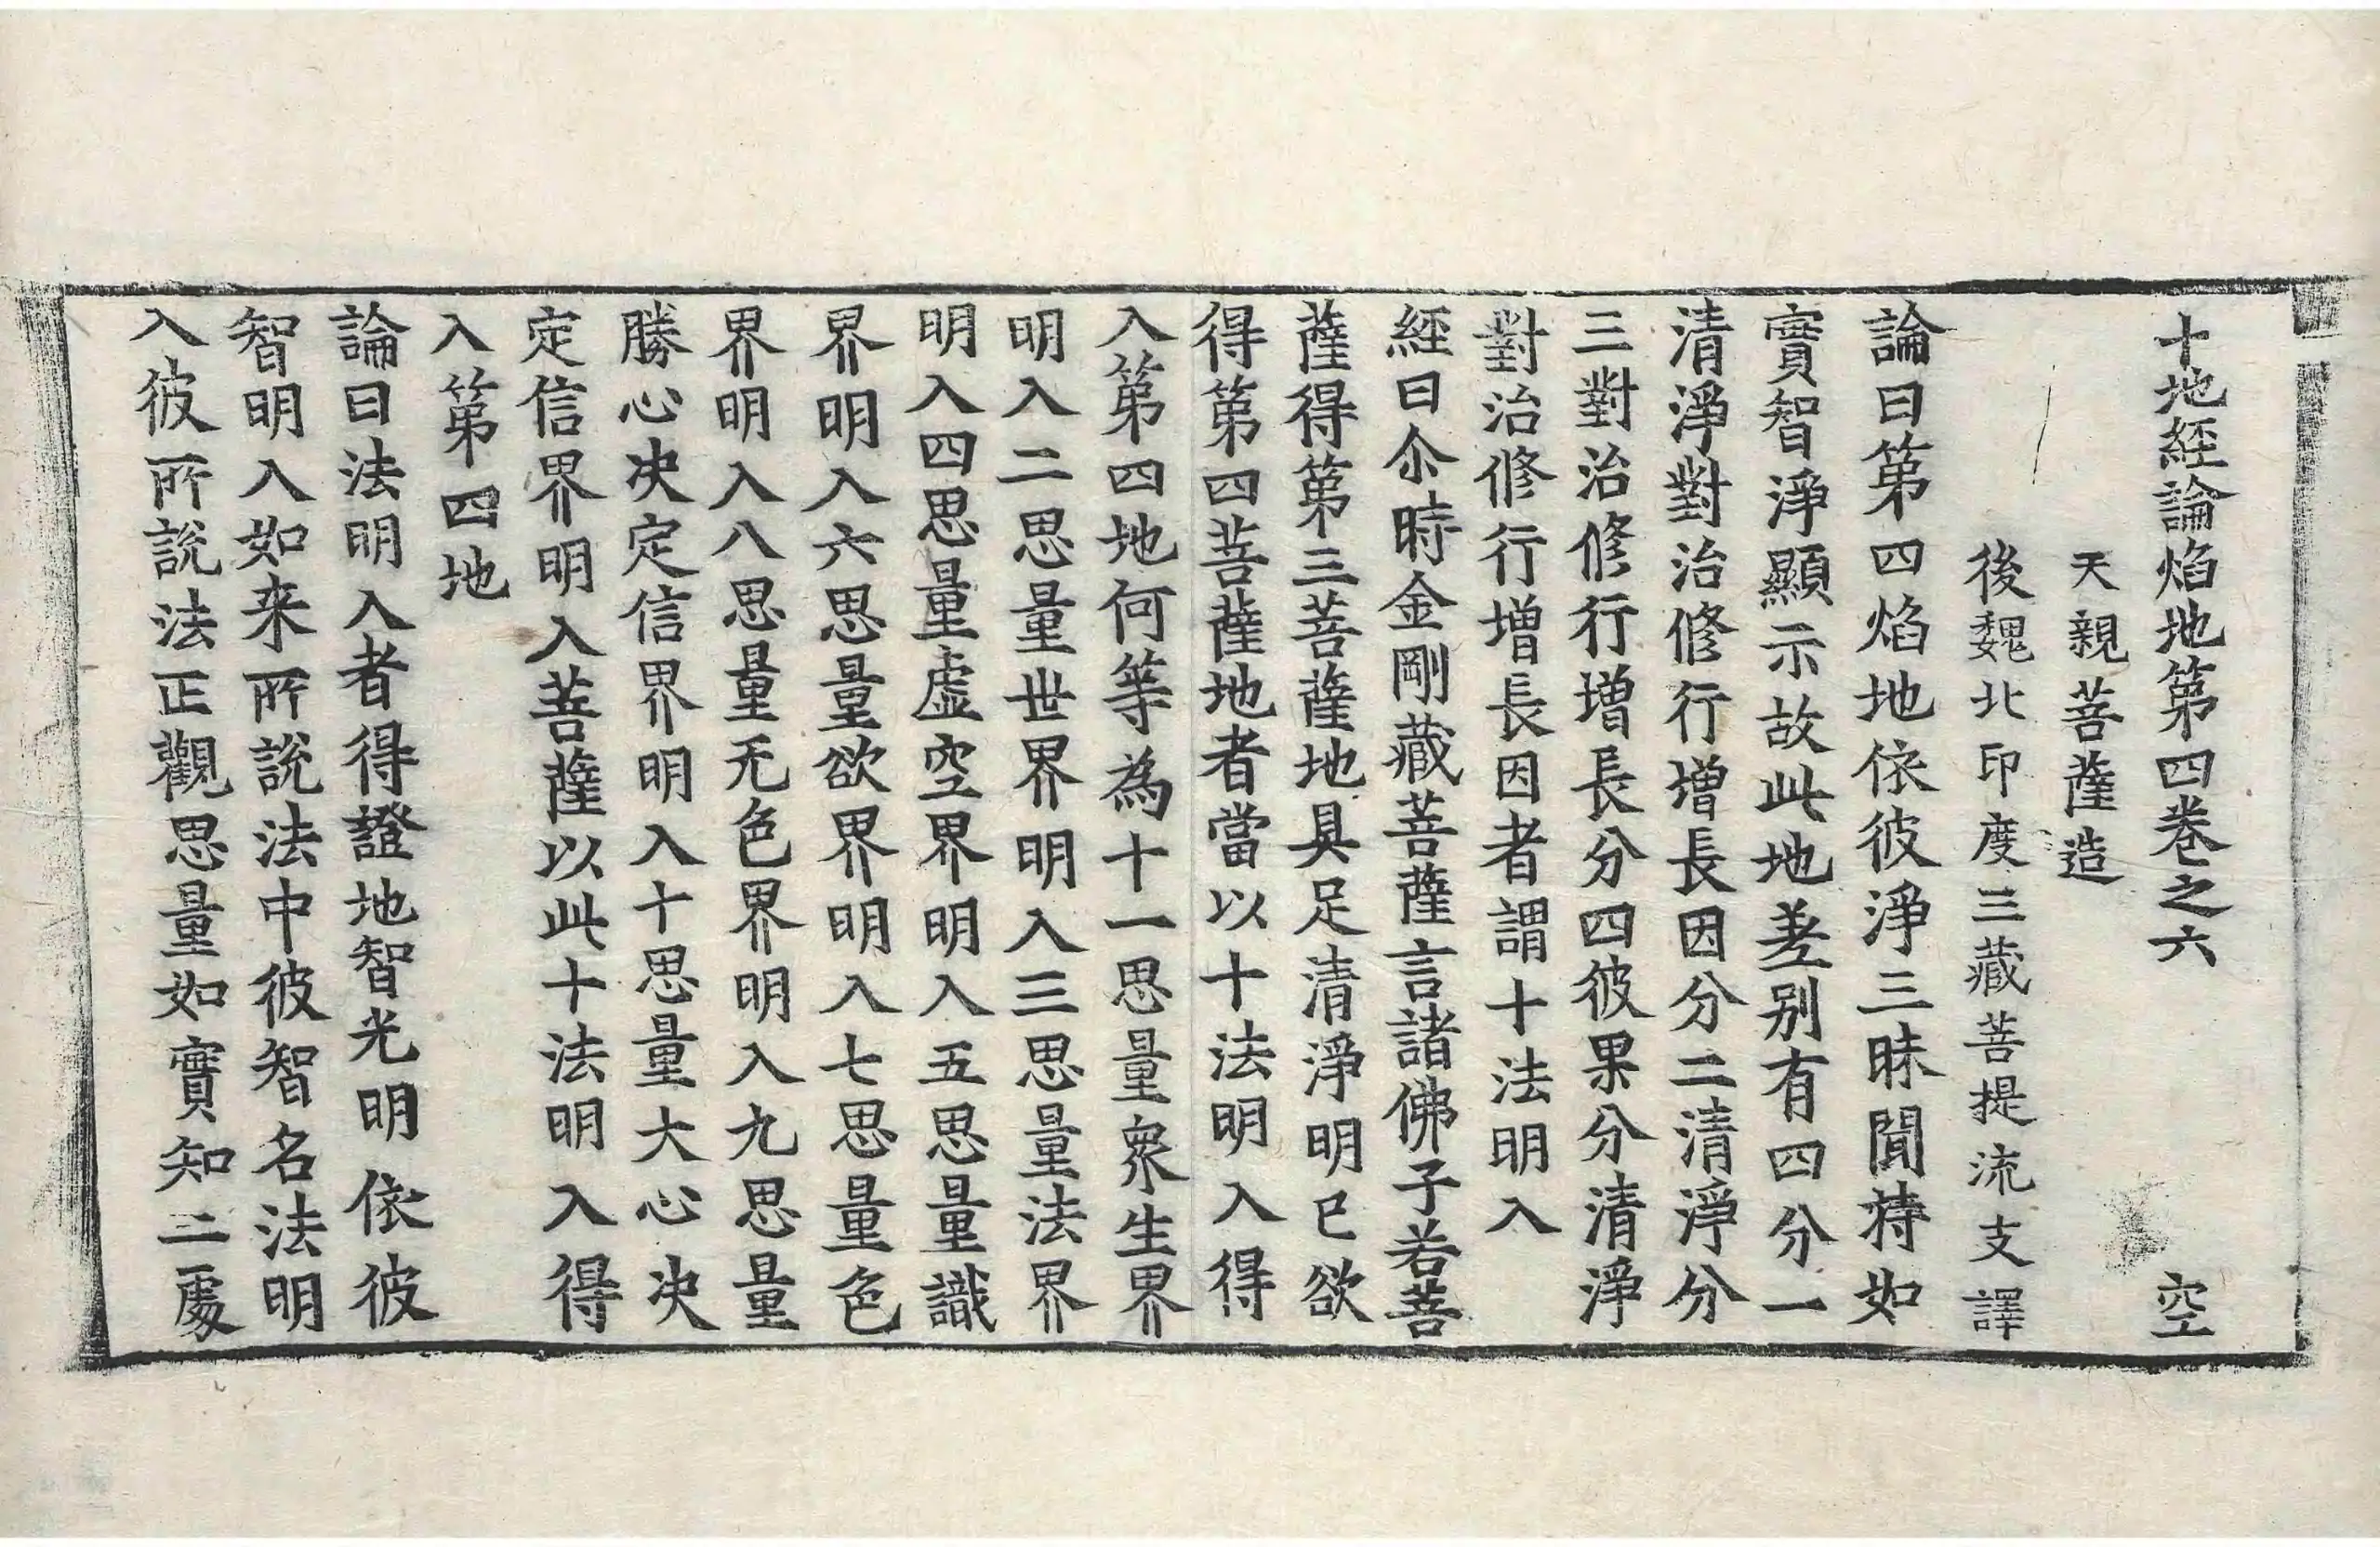 十地經論焰地第四卷之六 空
天親菩薩造
後魏北印度三藏菩提流支譯
論曰第四焰地依彼淨三昧聞持如
實智淨顯示故此地差别有四分一
清淨對治修行增長因分二清淨分
三對治修行增長分四彼果分清淨
對治修行增長因者謂十法明入
經曰尒時金剛藏菩薩言諸佛子若菩
薩得第三菩薩地具足清淨明已欲
得第四菩薩地者當以十法明入得
入第四地何等為十一思量衆生界
明入二思量世界明入三思量法界
明入四思量虛空界明入五思量識
界明入六思量欲界明入七思量色
界明入八思量无色界明入九思量
勝心决定信界明入十思量大心决
定信界明入菩薩以此十法明入得
入第四地
論曰法明入者得證地智光明依彼
智明入如来所說法中彼智名法明
入彼所說法正觀思量如實知二處